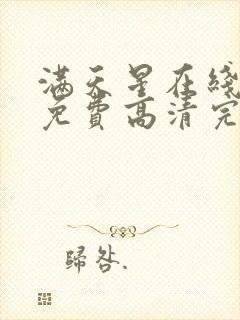 满天星在线
免费高清完
歸咎.